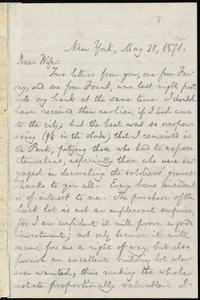 New York, May 31, 1871.
Dear Wife:
Two letters from you, one from Fan-
ny, and one from Frank, were last night put
into my hands at the same time. I should
have received them earlier, if I had come
to the city, but the heat was so rampa-
geous (94 in the shade) that I remained in
the Park, pitying those who had to expose
themselves, especially those who were en-
gaged in decorating the soldiers' graves.
Thanks to you all. Every home incident
is of interest to me. The purchase of the
back lot is not an unpleasant surprise,
for I am confident it will prove a good
investment; not only because it will
secure for us a right of way, but also
furnish an excellent building lot when-
ever wanted, thus making the whole
estate proportionally valuable. I